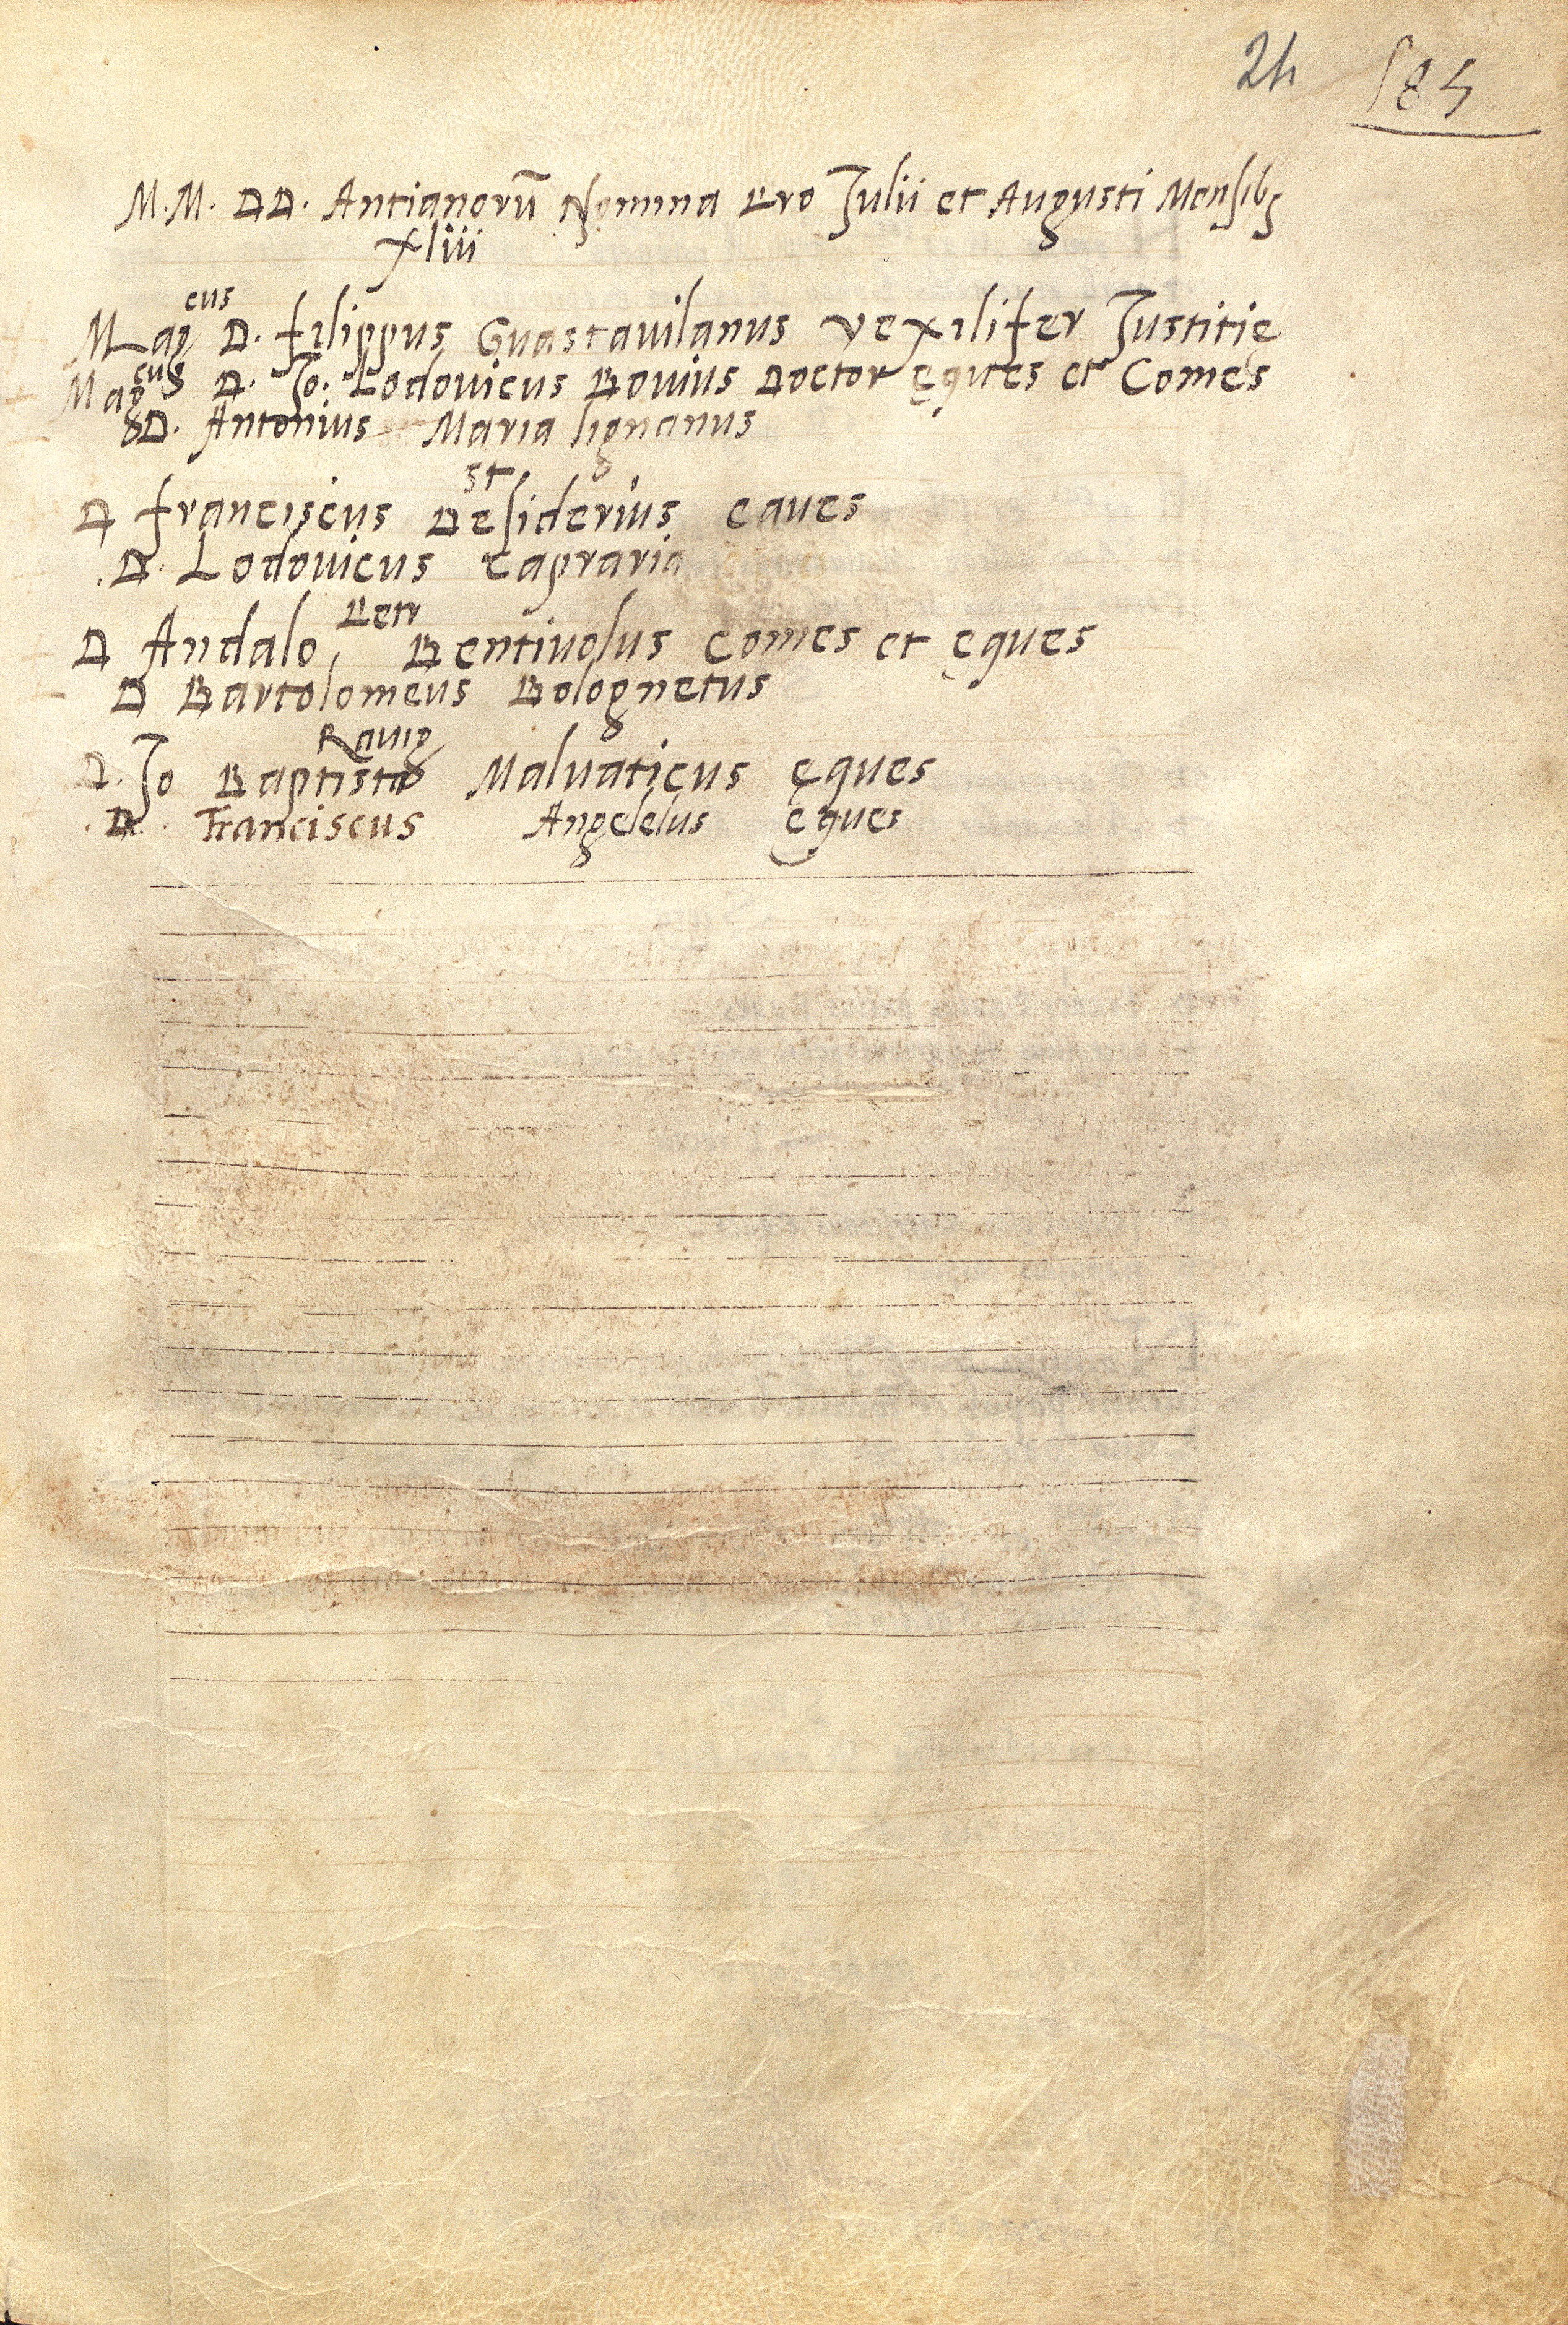 24 185
M. M. DD. Antianorū Nomina Pro Julii et Augusti Mensibꝫ
Xliii
Magcus D. filippus Guastauilanus vexilifer Justitie
Magcus D. Jo. Lodouicus Bouius Doctor eques et Comes
D. Antonius Maria lignanus
st
D franciscus Desiderius eques
D. Lodouicus Capraria
Petr
D Andalo, Bentiuolus comes et eques
D Bartolomeus Bolognetus
Rauig
D. Jo Baptista Maluaticus eques
D. Franciscus Angelelus eques